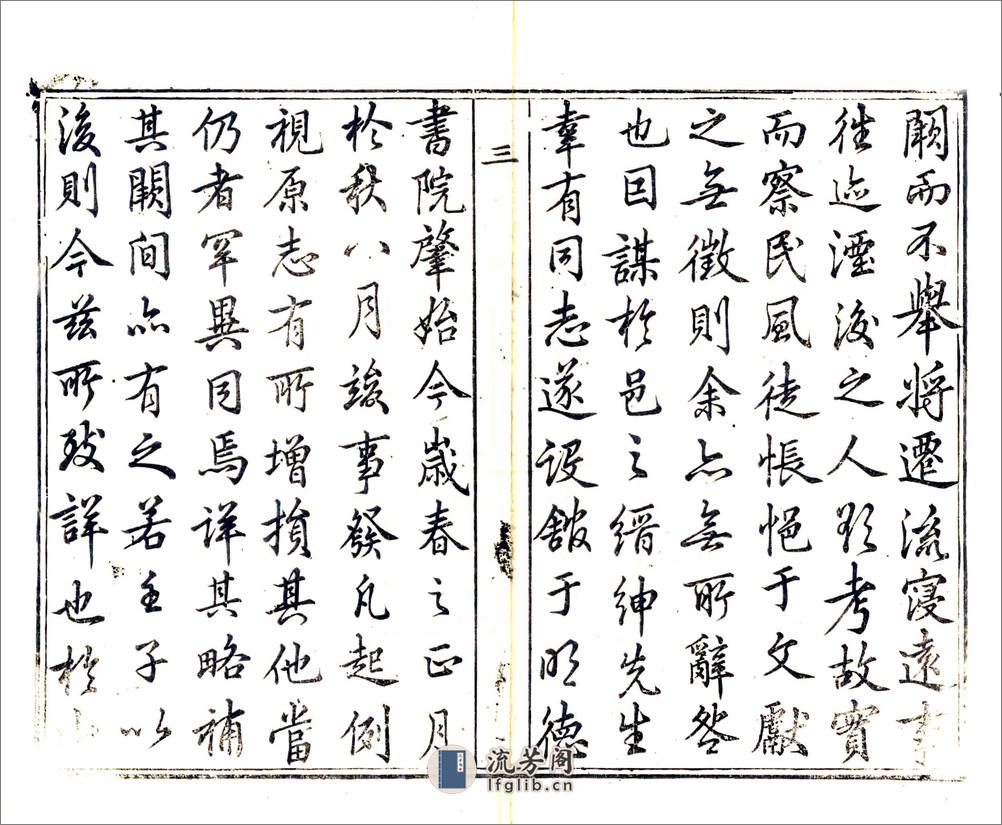 闕而不舉將遷流寖遠事
往迹湮後之人欲考故實
而察民風徒悵悒于文獻
之無徵則余亦無所辭咎
也因謀於邑之縉紳先生
幸有同志遂設館于明德
三
書院肇始今歲春之正月
於秋八月竣事發凡起例
視原志有所增損其他當
仍者罕異同焉詳其略補
其闕間亦有之若壬子以
後則今茲所致詳也於
流芳阁
lfglib.cn